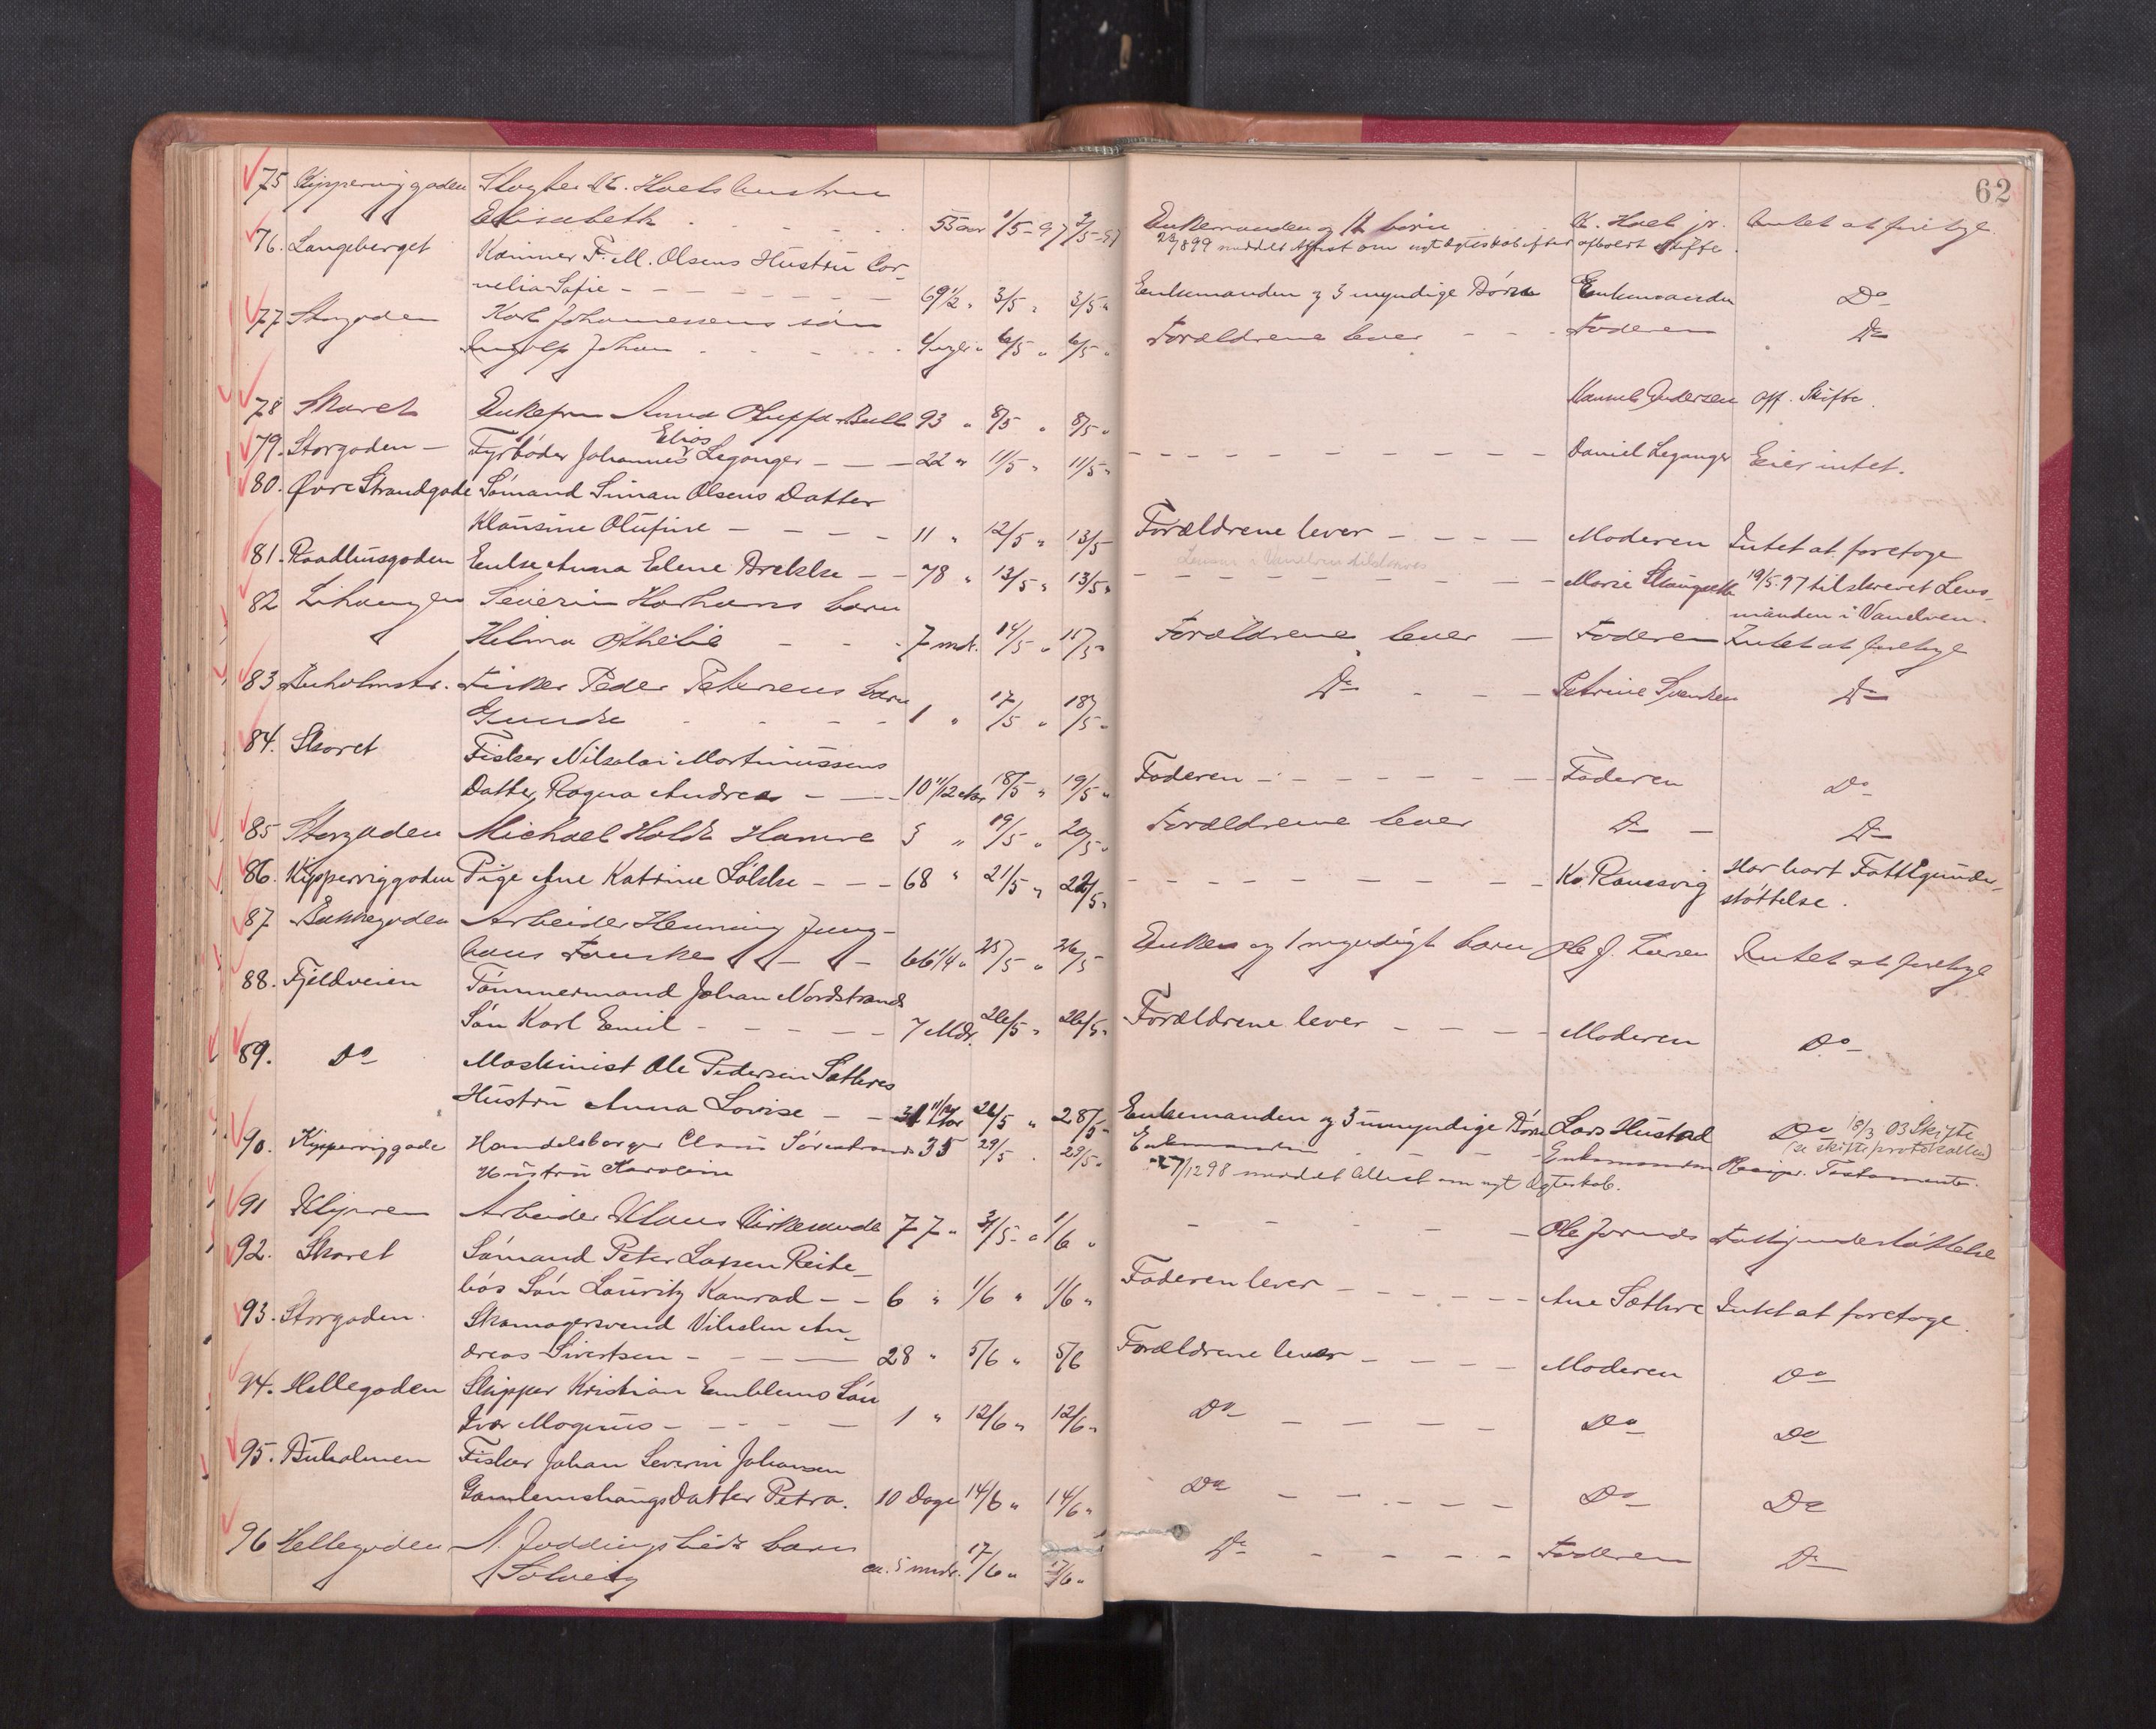 62
75 Kipperviggaden Slagter K. Hoels hustru
Elisabeth 55 aar 1/5-97 2/5-97 Enkemanden og børn K. Hoel jr. Intet at foretage
899 meddelt Attest om nyt Ægteskab efter afholdt skifte.
76. Langeberget Kæmner F. M. Olsens Hustru Cor-
nelia Sofie - 69 1/2 " 3/5 " 3/5 " Enkemanden og 3 myndige Børn Enkemanden Do
77 Storgaden Karl Johannessens søn
Johan 6/5 " 6/5 " Forældrene lever - Faderen Do
78 Skaret Enkefru Anna Oluffa Bull 93 " 8/5 " 8/5 " Andersen Off. Skifte.
79. Storgaden - Fyrbøder Johannes Elias Leganger - 22 " 11/5 " 11/5 " - Daniel Leganger Eier intet.
80. Øvre Strandgade Sømand Simon Olsens Datter
Klausine Olufine - 11 " 12/5 " 13/5 Forældrene lever - Moderen Intet at foretage
81. Raadhusgaden Enke Anna Elene Brekke - 78 " 13/5 " 13/5 " - Marie 19/5 97 tilskrevet Lens-
manden i Vanelven.
82 Lihaugen Severin barn
Helma Othelie - 7 mdr. 14/5 " 15/5 " Forældrene lever - Faderen Intet at foretage
83 Buholmstr. Fisker Peder Petersens barn
1 " 17/5 " 18/5 " Do - Petrine Svendsen Do
84. Skaret Fisker Nikolai Martinussens
Datter Ragna Andrea - 10 11/12 Aar 18/5 " 19/5 " Faderen - Faderen Do
85 Storgaden Michael Holdt Hamre 5 " 19/5 " 20/5 " Forældrene lever Do - Do
86. Kipperviggaden Pige Ane Katrine Løkke - 68 " 21/5 " 22/5 " - K. Ramsvig Har havt Fattigunder-
støttelse.
87 Bakkegaden Arbeider Henning Jung-
hans Fauske - 66 1/4 " 25/5 " 26/5 Enken og 1 myndigt barn Ole J. Larsen Intet at foretage
88. Fjeldveien Tømmermand Johan Nordstrands
Søn Karl Emil - 7 Mdr. 26/5 " 26/5 " Forældrene lever - Moderen Do
89. Do Maskinist Ole Pedersen Sæthres
Hustru Anna Lovise - 31 11/12 Aar 26/5 " 28/5 " Enkemanden og 3 umyndige Børn Lars Hustad Do 18/3 03 Skifte
(se skifteprotokollen)
90. Kipperviggade Handelsborger Claus 35 29/5 " 29/5 " Enkemanden - Enkemanden Recipr. Testamente.
Hustru Karoline 27/12 98 meddelt Attest om nyt Ægteskab.
91 Klipren Arbeider Klaus Kirkesunde 77 " 31/5 " 1/6 " - Ole Fattigunderstøttelse
92. Skaret Sømand Peter Larsen Reite-
bøs Søn Lauritz Konrad - 6 " 1/6 " 1/6 " Faderen lever - Ane Sæthre Intet at foretage.
93. Storgaden. Skomagersvend Vilhelm An-
dreas Sivertsen - 28 " 5/6 " 5/6 Forældrene lever - Moderen Do
94. Hellegaden Skipper Kristian Emblems Søn
Ivar Magnus - 1 " 12/6 " 12/6 " Do - Do Do
95. Buholmen Fisker Johan Severin Johansen
Gamlemshaugs Datter Petra. 10 Dage 14/6 " 14/6 " Do - Do Do
96 Hellegaden N. barn
Solveig ca. 5 mdr. 17/6 " 17/6 " Do - Faderen Do